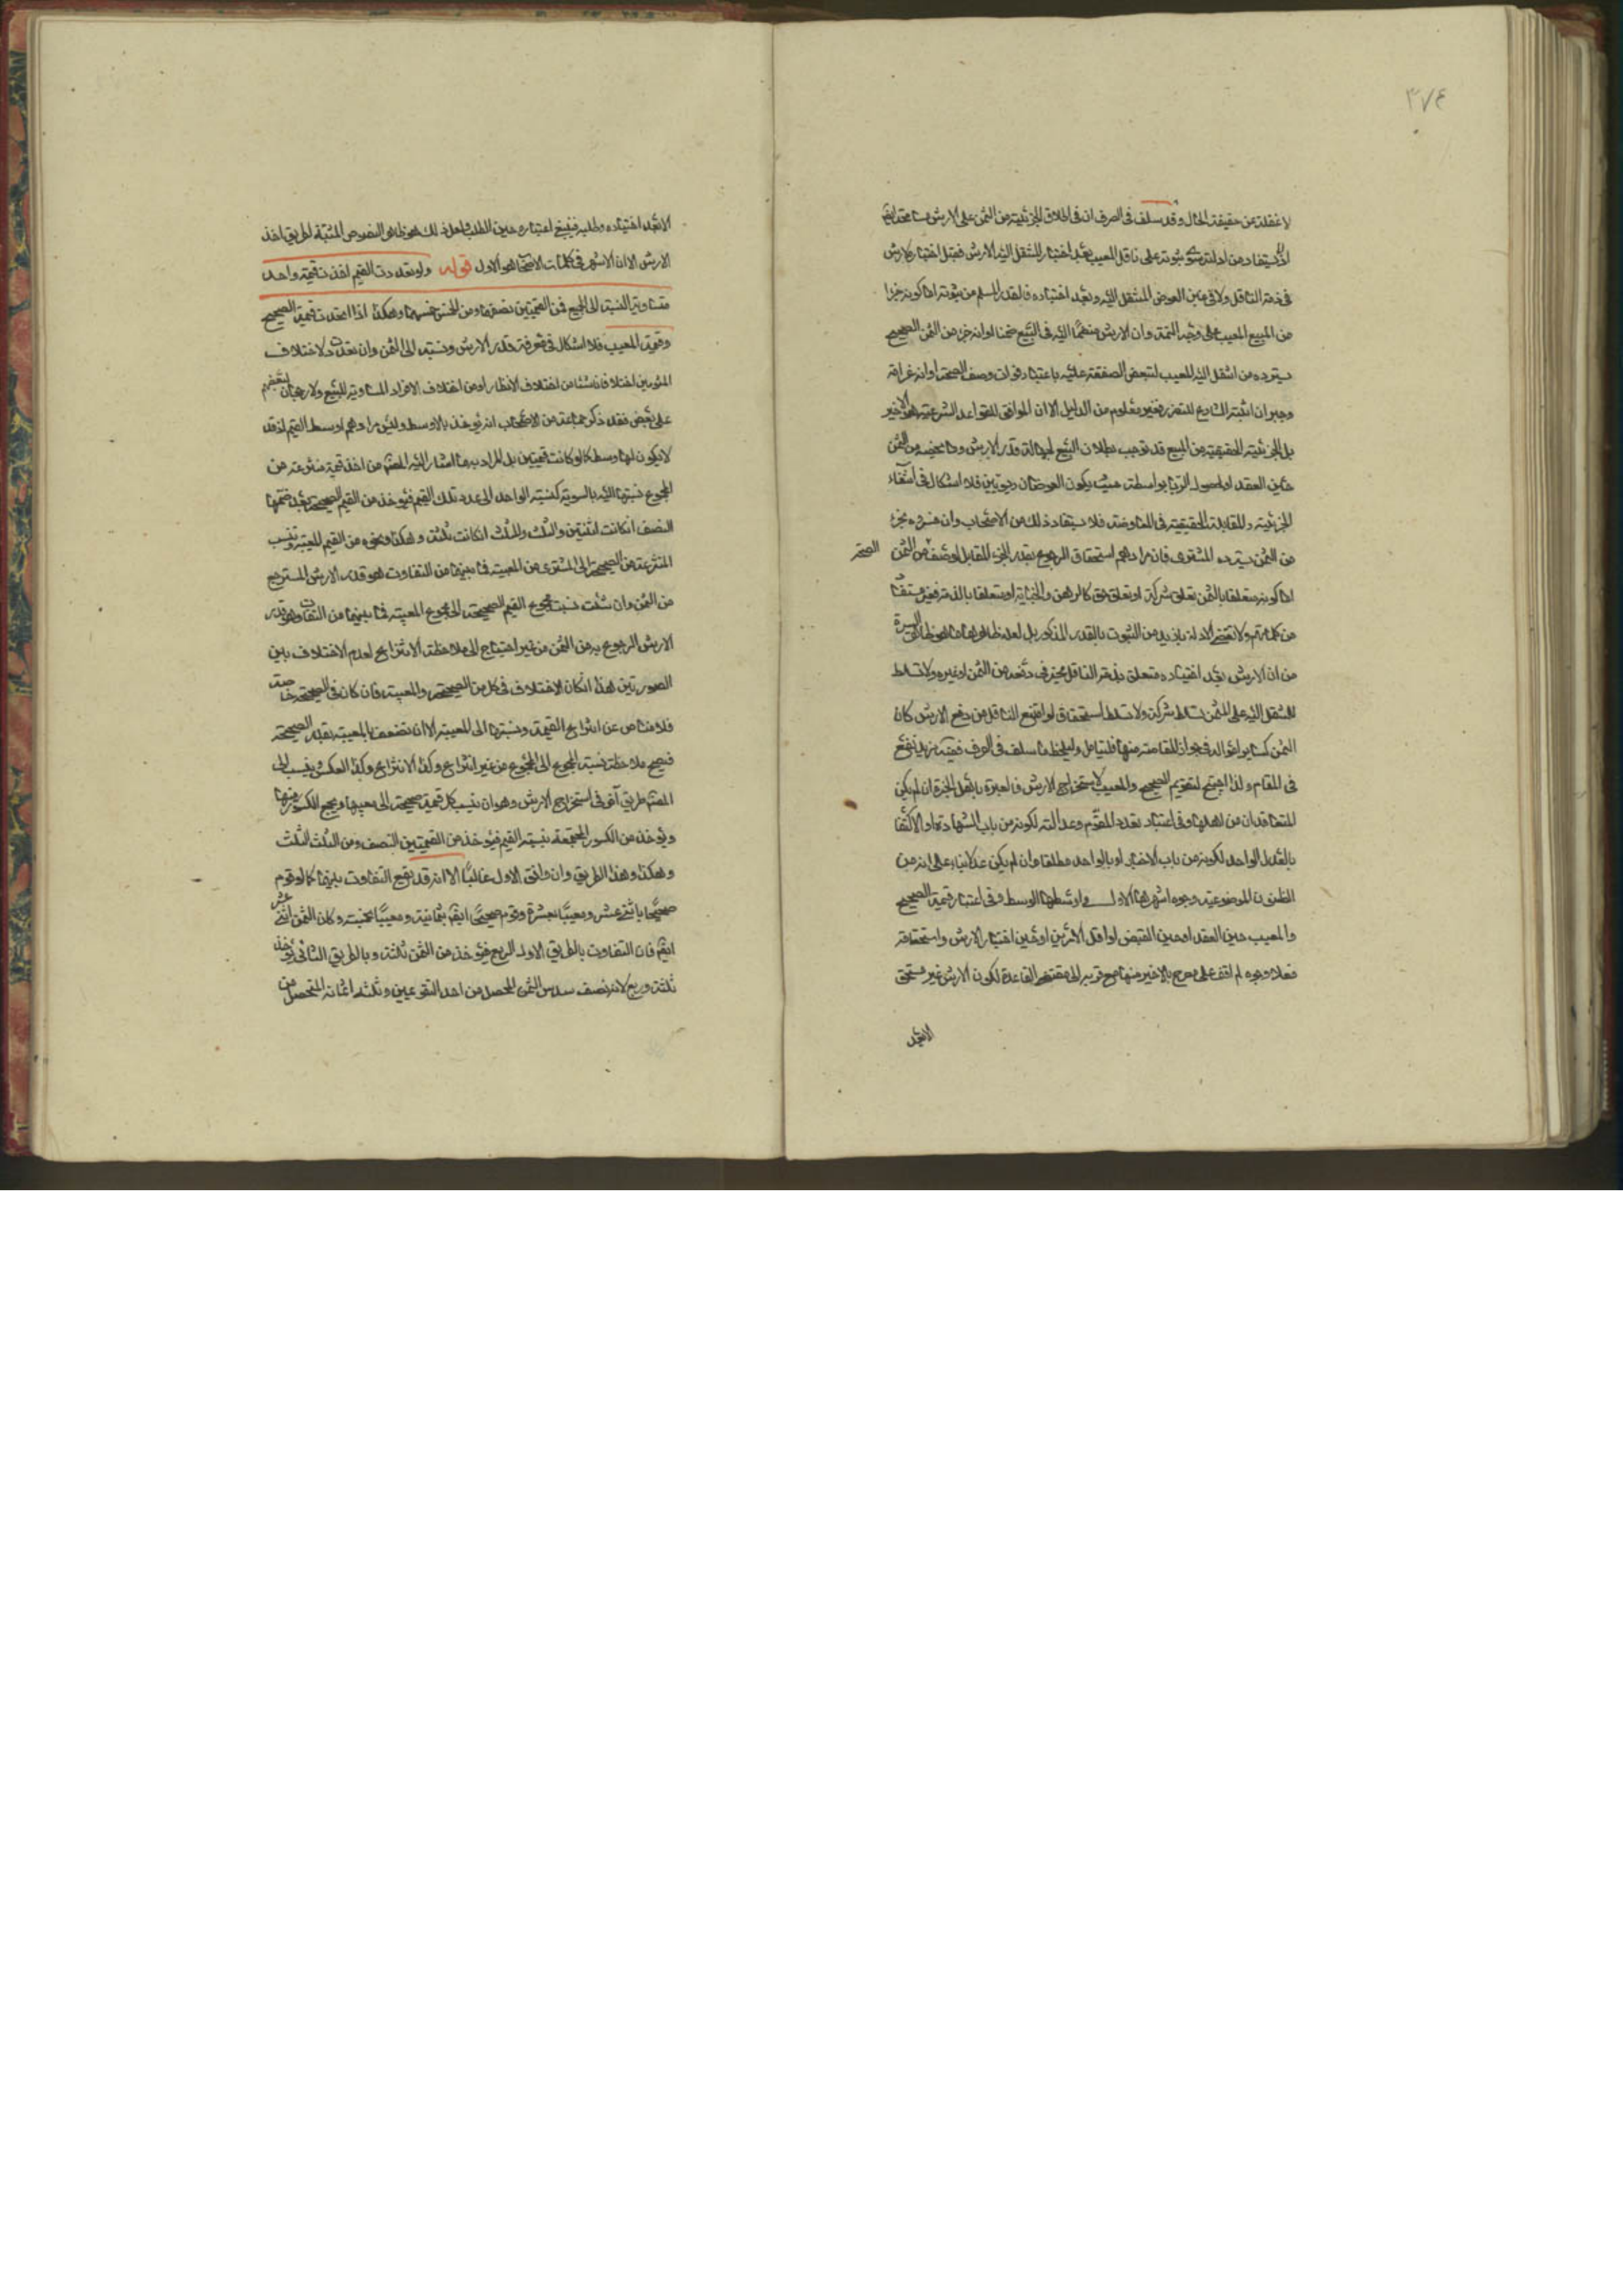 ٣٧٤
لا غفلة عن حقيقة الحال وقد سلف في الصرف ان في اطلاق الجزئية من الثمن على الارش مسامحة
اذ المستفاد من ادلته ثبوته على ناقل المعيب بعد اختيار المنتقل اليه الارش فقبل اختياره لا ارش
في ذمة الناقل ولا في عين العوض المنتقل اليه وبعد اختياره فالقدر المسلم من ثبوته اما كونه جزءا
من المبيع المعيب على وجه التتمة وان الارش منضما اليه في البيع ضمنا او انه جزء من الثمن الصحيح
يسترده من انتقل اليه المعيب لتبعض الصفقة عليه باعتبار فوات وصف الصحة او انه غرامة
وجبران اثبته الشارع للتضرر فغير معلوم من الدليل الا ان الموافق للقواعد الشرعية هو الاخير
بل الجزئية الحقيقية من المبيع قد توجب بطلان البيع لجهالة قدر الارش وما يخصه من الثمن
حين العقد او لحصول الربا بواسطته حيث يكون العوضان ربويين فلا اشكال في انتفاء
الجزئية والمقابلة الحقيقية في المعاوضة فلا يستفاد ذلك من الاصحاب وان فسروه بجزء
من الثمن يسترده المشتري فان مرادهم استحقاق الرجوع بقدر الجزء المقابل لوصف من الثمن
الصحة
اما كونه متعلقا بالثمن تعلق شركة او تعلق حق كالرهن والجناية او متعلقا بالذمة فغير مستفاد
من كلماتهم ولا تقضي الادلة بازيد من الثبوت بالقدر المذكور بل لعل ظاهرها ما هو ظاهر السيرة
من ان الارش بعد اختياره متعلق بذمة الناقل مخير في دفعه من الثمن او غيره ولا تسلط
للمنتقل اليه على الثمن تسلط شركة ولا تسلط استحقاق لو امتنع الناقل من دفع الارش كان
الثمن كسائر امواله في جواز المقاصة منها فليتامل وليلحظ ما سلف في الصرف ففيه مزيد نفع
في المقام واذا احتيج لتقويم الصحيح والمعيب لاستخراج الارش فالعبرة باهل الخبرة ان لم يكن
المتعاقدان من اهلها وفي اعتبار تعدد المقوم وعدالته لكونه من باب الشهادة او الاكتفاء
بالعدل الواحد لكونه من باب الاخبار او بالواحد مطلقا وان لم يكن عدلا بناء على انه من
الظنون الموضوعية وجوه اشهرها الاول واوسطها الوسط وفي اعتبار قيمة الصحيح
والمعيب حين العقد او حين القبض او اقل الامرين او حين اختيار الارش واستحقاقه
فعلا وجوه لم اقف على مصرح بالاخير منها مع قربه الى مقتضى القاعدة لكون الارش غير مستحق
الا بعد
الا بعد اختياره وطلبه فينبغي اعتباره حين الطلب ولعل ذلك هو ظاهر النصوص المثبتة لطريق اخذ
الارش الا ان الاشهر في كلمات الاصحاب هو الاول قوله ولو تعددت القيم اخذت قيمة واحدة
متساوية النسبة الى الجميع فمن القيمتين نصفهما ومن الخمس خمسها وهكذا اذا اتحدت قيمة الصحيح
وقيمة المعيب فلا اشكال في معرفة قدر الارش ونسبته الى الثمن وان تعددت لاختلاف
المقومين اختلافا ناشئا من اختلاف الانظار او من اختلاف الافراد المساوية للمبيع ولا رجحان لبعضهم
على بعض فقد ذكر جماعة من الاصحاب انه يؤخذ بالاوسط وليس مرادهم اوسط القيم اذ قد
لا يكون لها وسط كما لو كانت قيمتين بل المراد به ما اشار اليه المصنف من اخذ قيمة منتزعة من
المجموع نسبتها اليه بالسوية كنسبة الواحد الى عدد تلك القيم فيؤخذ من القيم الصحيحة بعد ضمها
النصف ان كانت اثنتين والثلث والثلث ان كانت ثلثة وهكذا ونحوه من القيم المعيبة وتنسب
المنتزعة من الصحيحة الى المنتزع من المعيبة فما بينهما من التفاوت هو قدر الارش المسترجع
من الثمن وان شئت نسبت مجموع القيم الصحيحة الى مجموع المعيبة فما بينهما من التفاوت هو قدر
الارش المرجوع به من الثمن من غير احتياج الى ملاحظة الانتزاع لعدم الاختلاف بين
الصورتين هذا ان كان الاختلاف في كل من الصحيحة والمعيبة فان كان في الصحيحة خاصة
فلا مناص عن انتزاع القيمة ونسبتها الى المعيبة الا ان تضعف المعيبة بقدر الصحيحة
فيصح ملاحظة نسبة المجموع الى المجموع من غير انتزاع وكذا الانتزاع وكذا العكس وينسب الى
المصنف طريق آخر في استخراج الارش وهو ان ينسب كل قيمة صحيحة الى معيبها ويجمع الكسور منها
ويؤخذ من الكسور المجتمعة بنسبة القيم فيؤخذ من القيمتين النصف ومن الثلث الثلث
وهكذا وهذا الطريق وان وافق الاول غالبا الا انه قد يقع التفاوت بينهما كما لو قوم
صحيحا باثني عشر ومعيبا بعشرة وقوم صحيحا ايضا بثمانية ومعيبا بخمسة وكان الثمن اثني عشر
ايضا فان التفاوت بالطريق الاول الربع فيؤخذ من الثمن ثلثة وبالطريق الثاني يؤخذ
ثلثة وربع لانه نصف سدس الثمن المحصل من احد التقويمين وثلثة اثمانه المتحصل من